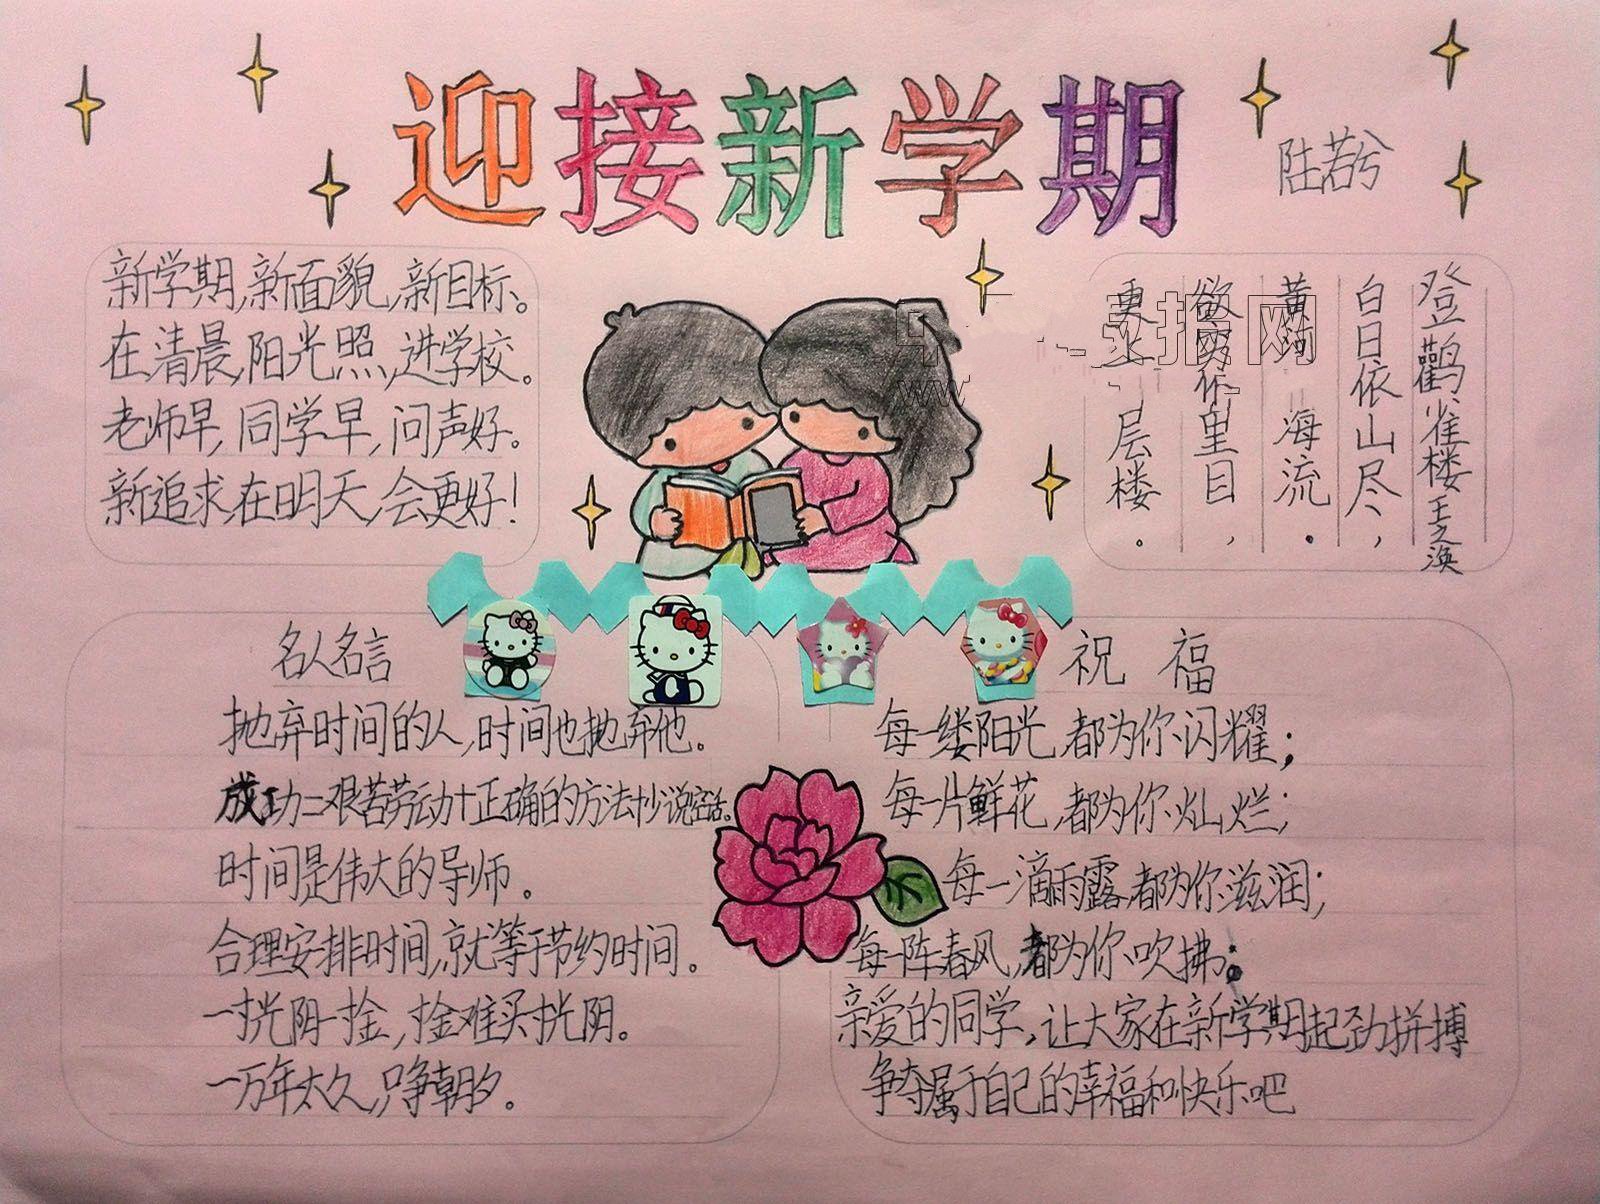 迎接新学期
陆若兮
新学期,新面貌,新目标。
在清晨,阳光照,进学校。
老师早,同学早,问声好。
新追求,在明天,会更好!
登鹳雀楼 王之涣
白日依山尽,
黄河 海流。
欲穷 里目,
更上 层楼。
报网
名人名言
抛弃时间的人,时间也抛弃他。
成功=艰苦劳动+正确的方法+少说空话。
时间是伟大的导师。
合理安排时间,就等于节约时间。
一寸光阴一寸金,寸金难买寸光阴。
一万年太久,只争朝夕。
祝 福
每一缕阳光,都为你闪耀;
每一片鲜花,都为你灿烂;
每一滴雨露,都为你滋润;
每一阵春风,都为你吹拂;
亲爱的同学,让大家在新学期起劲拼搏
争夺属于自己的幸福和快乐吧